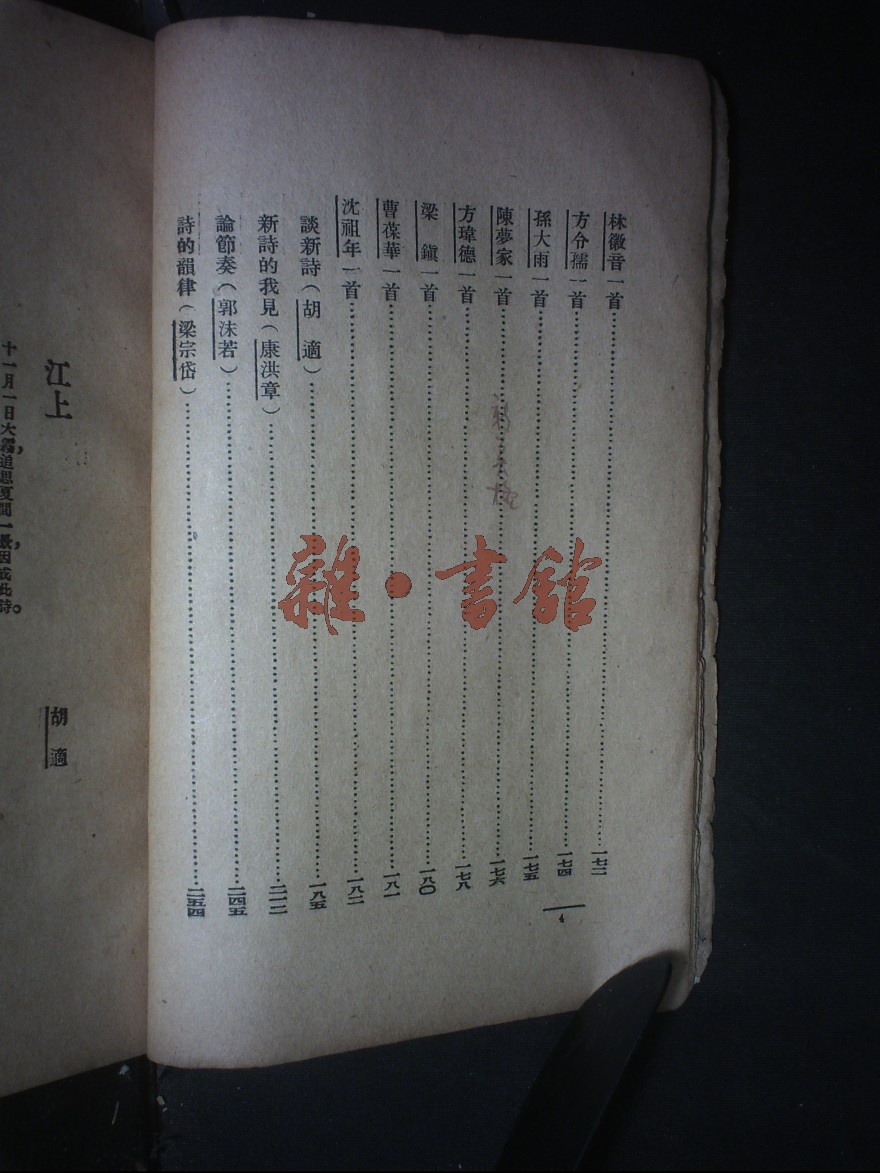 林徽音一首……一七二
方令孺一首……一七四
孫大雨一首……一七五
陳夢家一首……一七六
方瑋德一首……一七八
梁　鎮一首……一八〇
曹葆華一首……一八一
沈祖年一首……一八二
談新詩（胡　適）……一八五
新詩的我見（康洪章）……二一二
論節奏（郭沫若）……二四五
詩的韻律（梁宗岱）……二五四
4
江上
胡　適
十一月一日大霧，追思夏間一景，因成此詩。
雜·書館